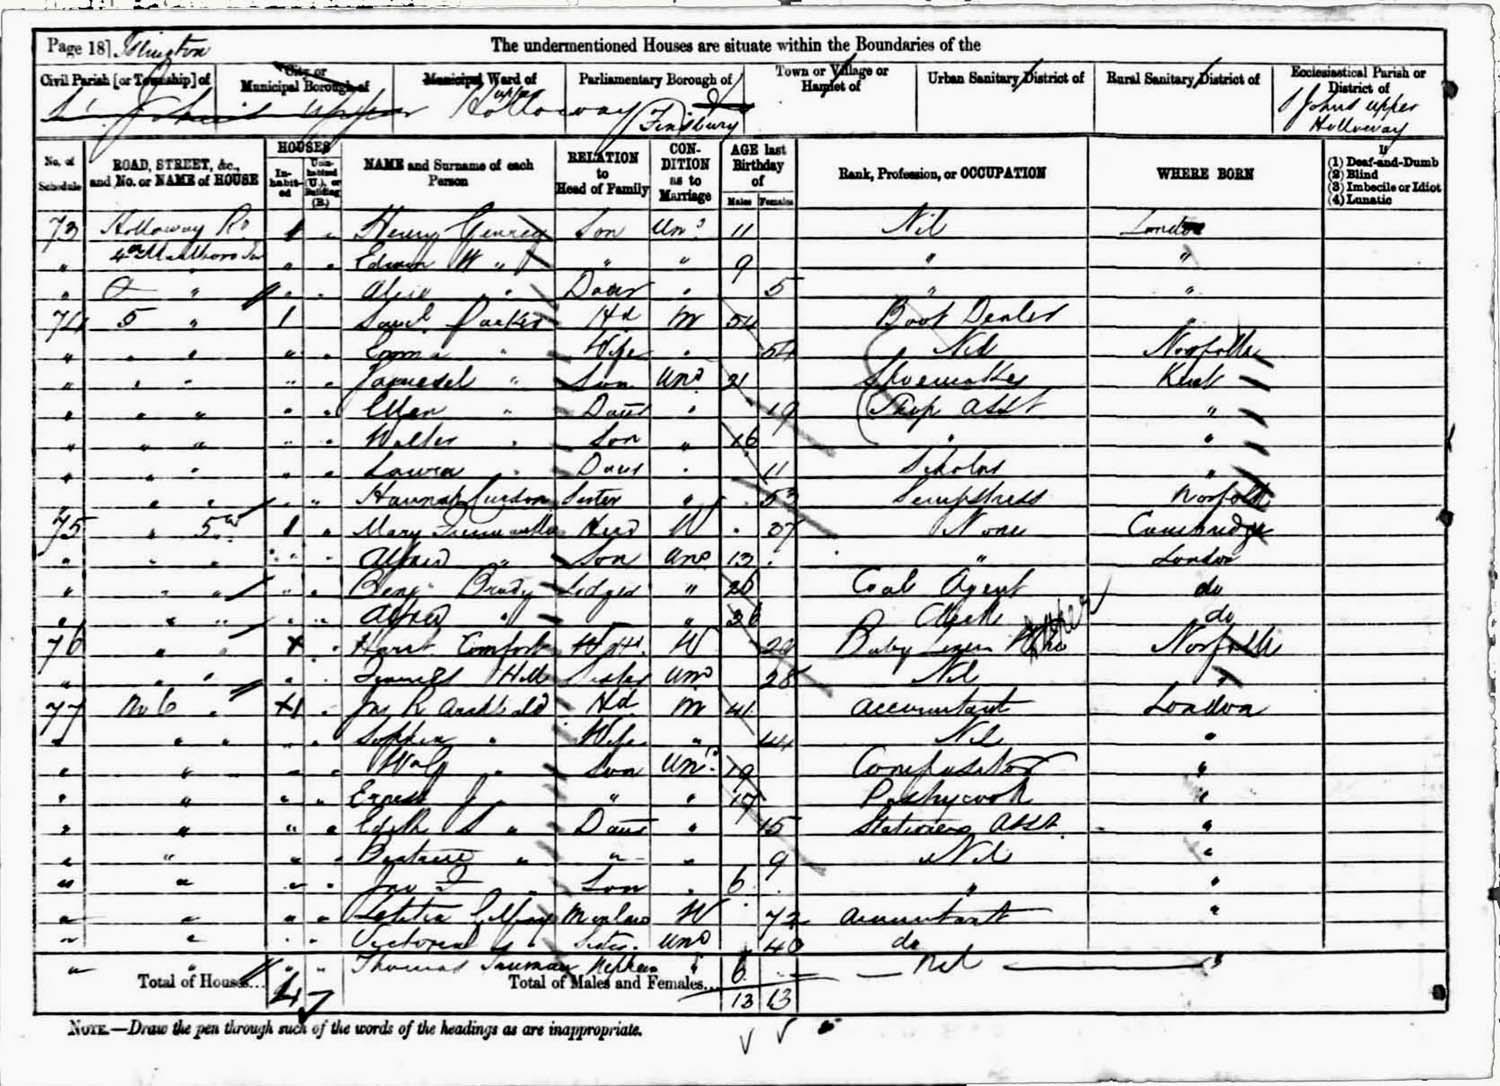 Page 18] Islington The undermentioned Houses are situate within the Boundaries of the
Civil Parish [or Township] of City or Municipal Borough of Municipal Ward of Parliamentary Borough of Town or Village or Hamlet of Urban Sanitary District of Rural Sanitary District of Ecclesiastical Parish or District of
Upper Holloway Finsbury St Johns Upper Holloway
No. of Schedule ROAD, STREET, &c., and No. or NAME of HOUSE HOUSES Inhabited Uninhabited (U.), or Building (B.) NAME and Surname of each Person RELATION to Head of Family CONDITION as to Marriage AGE last Birthday of Males Females Rank, Profession, or OCCUPATION WHERE BORN If (1) Deaf-and-Dumb (2) Blind (3) Imbecile or Idiot (4) Lunatic
73 Holloway Rd 1 " Henry Son Unm 11 Nil London
" 4a " " Edwin W " " " 9 " "
" " " " Alice " Daur " 5 " "
74 5 " 1 Saml Parker Hd M 54 Book Dealer "
" " " " Emma " Wife " 54 Nil Norfolk
" " " " " Son Unm 21 Shoemaker Kent
" " " " " Ellen " Daur " 19 Shop Asst "
" " " " Walter " Son " 16 " "
" " " Laura " Daur " 11 Scholar "
" " " " Hannah Sister " 53 Sempstress Norfolk
75 " 5a 1 " Mary Head W " 37 None Cambridge
" " " " Alfred " Son Unm 13 " " London
" " " " Benj Brady Lodger " 26 Coal Agent do
" " " " Alfred " " " 26 Clerk do
76 " " X " Comfort W Hd W 29 Baby Linen Norfolk
" " " " Hill Sister Unm 28 Nil "
77 No 6 " X1 " Jas R Archbald Hd M 41 Accountant London
" " " " Sophia " Wife " 44 Nil "
" " " " " Son Unm 19 Compositor "
" " " " Ernest J " " " 17 Pastrycook "
" " " " Edith S " Daur " 15 Stationers Asst "
" " " " Beatrice " " " 9 Nil "
" " " " Jas F " Son " 6 " "
" " " " Letitia W 72 Accountant "
" " " " Victoria " Sister Unm 40 do
" " " " Thomas Nephew " 6 Nil "
Total of Houses... 4 Total of Males and Females... 13 13
NOTE.—Draw the pen through such of the words of the headings as are inappropriate.